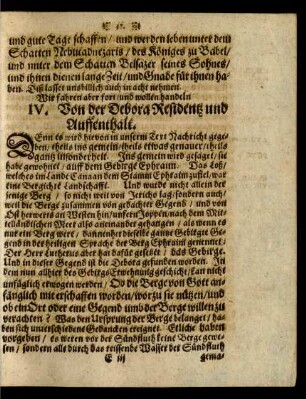 und gute Tage schaffen / und werden leben unter dem
Schatten Nebucadnezaris / des Königes zu Babel /
und unter dem Schatten Belsazer seines Sohnes /
und ihnen dienen lange Zeit / und Gnade für ihnen ha-
ben. Diß lasset uns billich auch in acht nehmen.
Wir fahren aber fort / und wollen handeln
IV. Von der Debora Residentz und
Auffenthalt.
DEnn es wird hievon in unserm Text Nachricht gege-
ben / theils ins gemein / theils etwas genauer / theils
gantz insonderheit. Ins gemein wird gesaget / sie
habe gewohnet / auff dem Gebirge Ephraim. Das Loß /
welches im Lande Canaan dem Stamm Ephraim zufiel / war
eine Bergichte Landschafft. Und wurde nicht allein der
einige Berg / so nicht weit von Jericho lag / sondern auch /
weil die Berge zusammen von gedachter Gegend / und von
Ost herwerts an Westen hin / unfern Joppen / nach dem Mit-
telländischen Meer also aneinander gehangen / als wenn es
nur ein Berg wert / dannenhero dieselbe gantze Gebirgte Ge-
gend in der heiligen Sprache der Berg Ephraim genennet /
Der Herr Lutherus aber hat dafür gesetzt / das Gebirge.
Und in dieser Gegend ist die Debora gefunden worden. In
dem nun allhier des Gebirgs Erwehnung geschicht / kan nicht
unfüglich erwogen werden / Ob die Berge von Gott an-
fänglich mit erschaffen worden / worzu sie nützen / und
ob ein Ort oder eine Gegend umb der Berge willen zu
verachten? Was den Ursprung der Berge belanget / ha-
ben sich unterschiedene Gedancken ereignet. Etliche haben
vorgeben / es weren vor der Sündfluth keine Berge gewe-
sen / sondern als durch das reissende Wasser der Sündfluth
E iij
gema-